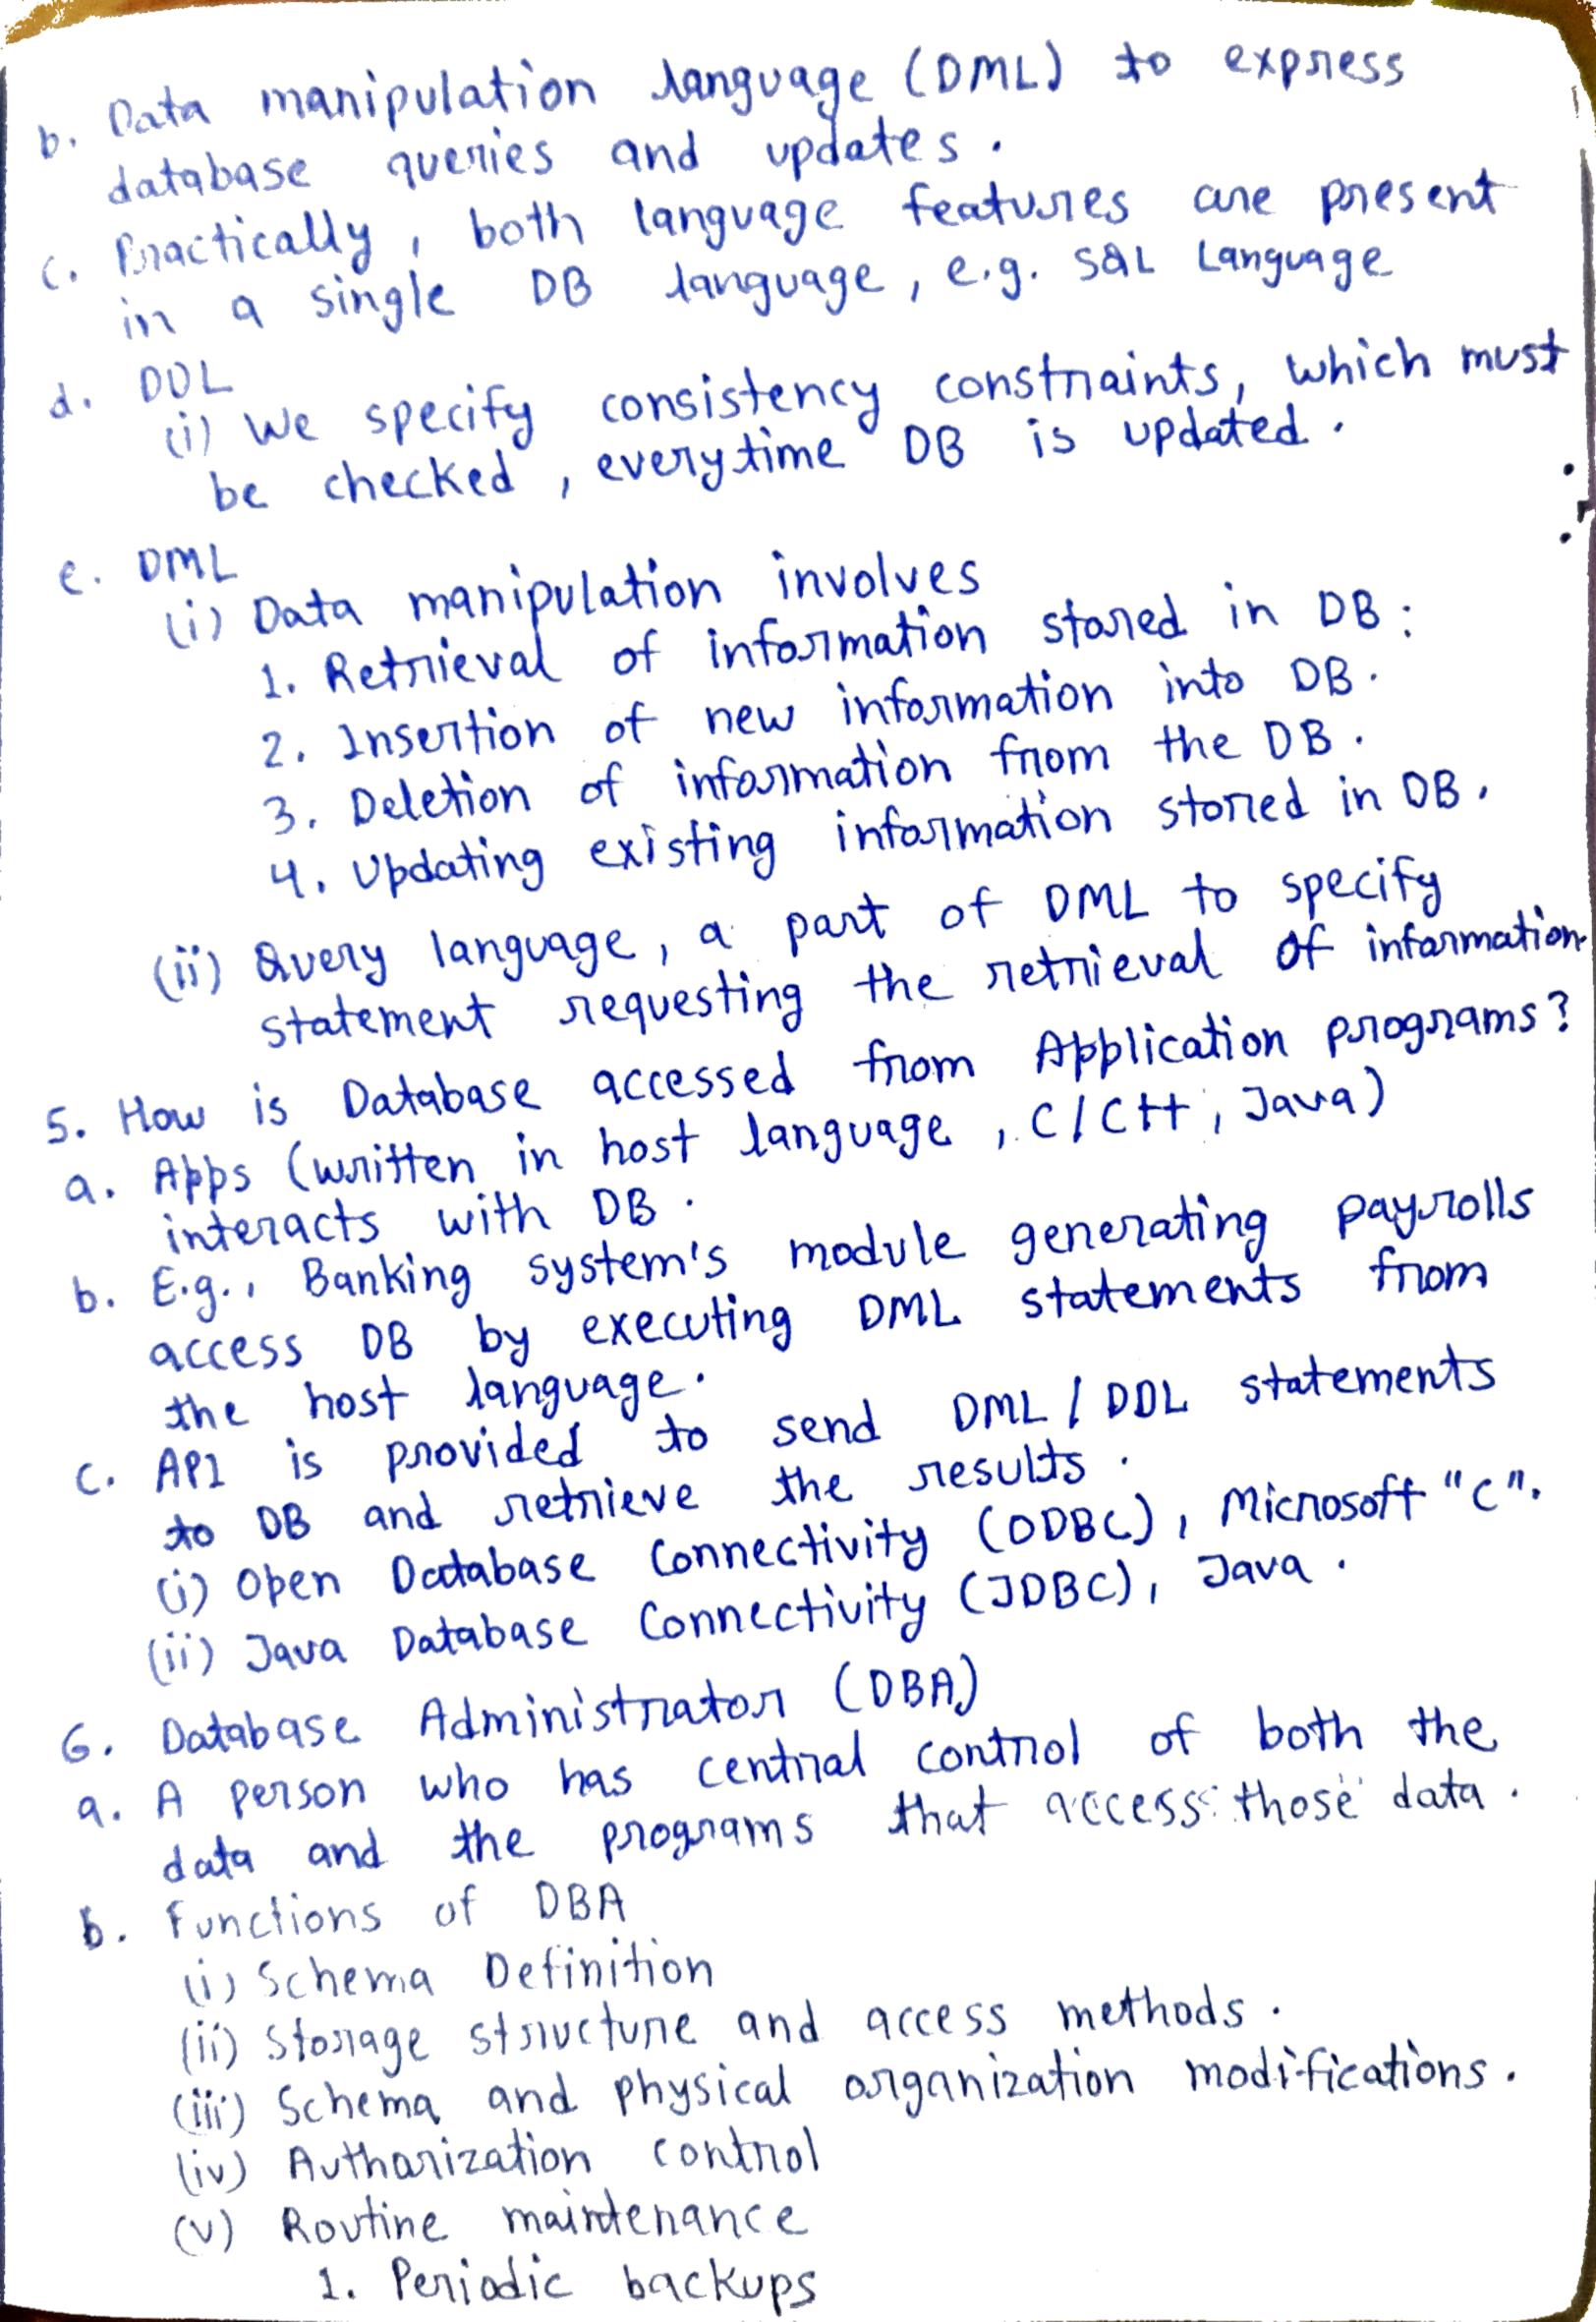 b. Data manipulation language (DML) to express
database queries and updates.
c. Practically, both language features are present
in a single DB language, e.g. SQL Language
d. DDL
(i) We specify consistency constraints, which must
be checked, everytime DB is updated.
e. DML
(i) Data manipulation involves
1. Retrieval of information stored in DB:
2. Insertion of new information into DB.
3. Deletion of information from the DB.
4. Updating existing information stored in DB.
(ii) Query language, a part of DML to specify
statement requesting the retrieval of information
5. How is Database accessed from Application programs?
a. Apps (written in host language, C/C++, Java)
interacts with DB.
b. E.g., Banking system's module generating payrolls
access DB by executing DML statements from
the host language.
c. API is provided to send DML/DDL statements
to DB and retrieve the results.
(i) Open Database Connectivity (ODBC), Microsoft "C".
(ii) Java Database Connectivity (JDBC), Java.
6. Database Administrator (DBA)
a. A person who has central control of both the
data and the programs that access those data.
b. Functions of DBA
(i) Schema Definition
(ii) Storage structure and access methods.
(iii) Schema and physical organization modifications.
(iv) Authorization control
(v) Routine maintenance
1. Periodic backups